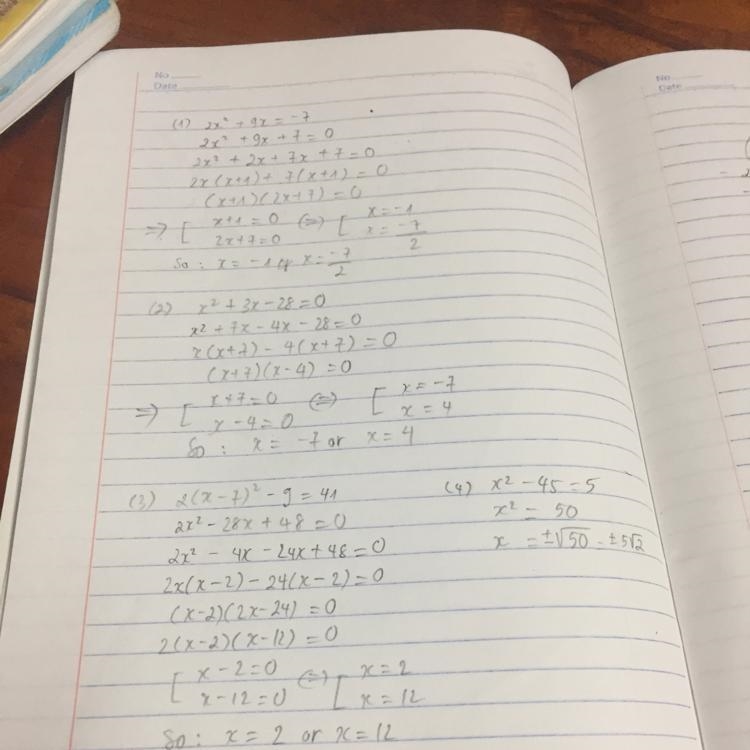 No
Date
(1) 2x² + 9x = -7
2x² + 9x + 7 = 0
2x² + 2x + 7x + 7 = 0
2x(x+1) + 7(x+1) = 0
(x+1)(2x+7) = 0
=> [ x+1 = 0 <=> [ x = -1
2x+7 = 0 x = -7/2
So: x = -1 or x = -7/2
(2) x² + 3x - 28 = 0
x² + 7x - 4x - 28 = 0
x(x+7) - 4(x+7) = 0
(x+7)(x-4) = 0
=> [ x+7 = 0 <=> [ x = -7
x - 4 = 0 x = 4
So: x = -7 or x = 4
(3) 2(x-7)² - 9 = 41
2x² - 28x + 48 = 0
2x² - 4x - 24x + 48 = 0
2x(x-2) - 24(x-2) = 0
(x-2)(2x-24) = 0
2(x-2)(x-12) = 0
[ x - 2 = 0 <=> [ x = 2
x - 12 = 0 x = 12
So: x = 2 or x = 12
(4) x² - 45 = 5
x² = 50
x = ±√50 = ±5√2
No
Date